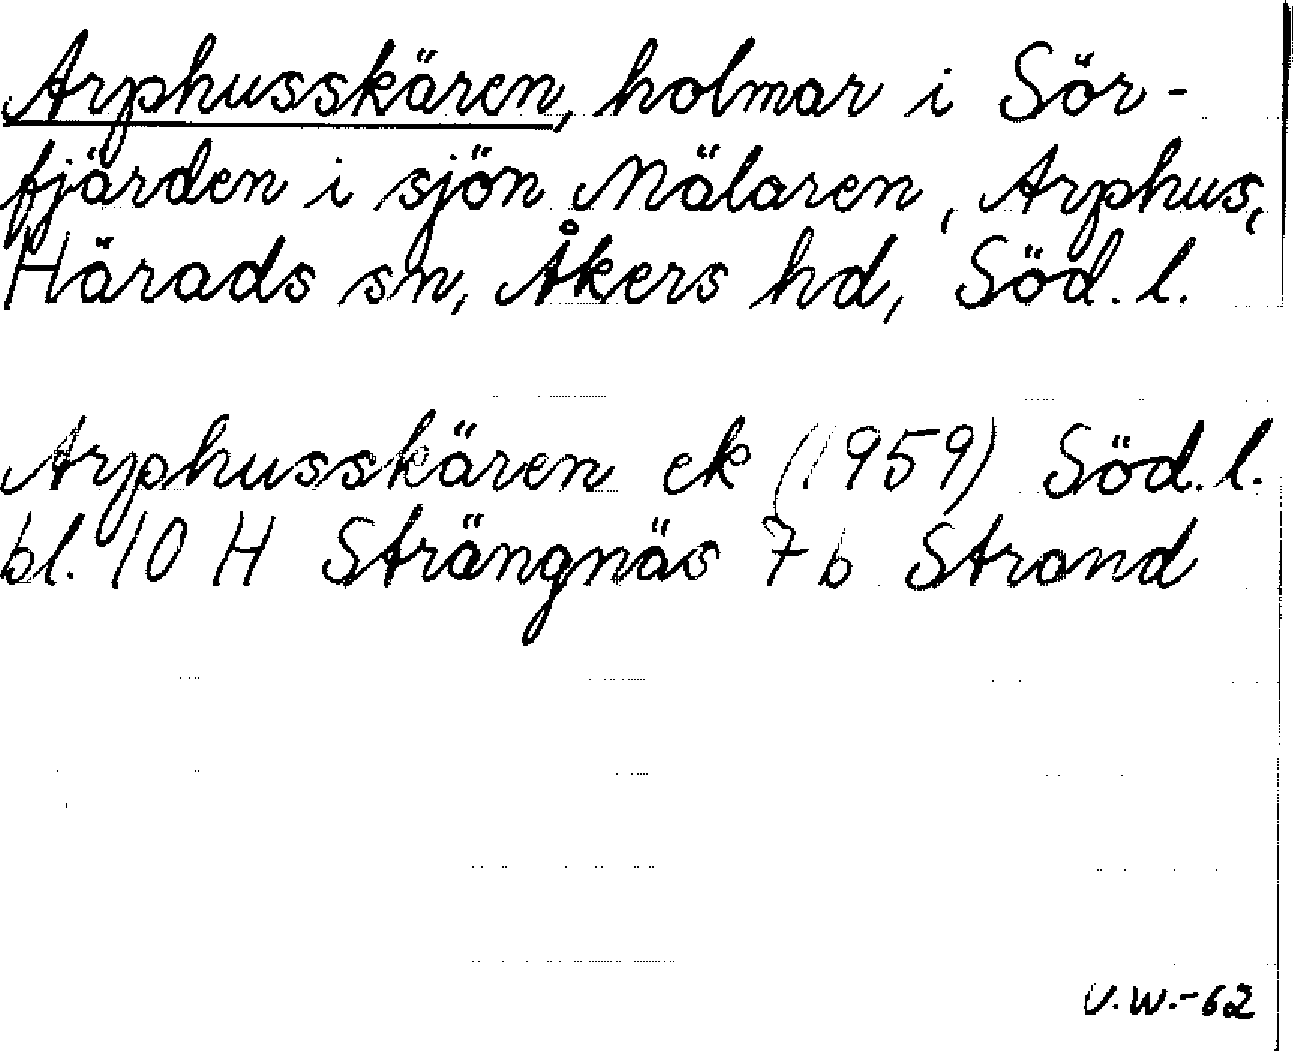 Arphusskären, holmar i Sör-
fjärden i sjön Mälaren, Arphus,
Härads sn, Åkers hd, Söd. l.
Arphusskären ek (1959) Söd. l.
bl. 10 H Strängnäs 7 b Strand
V.W.-62